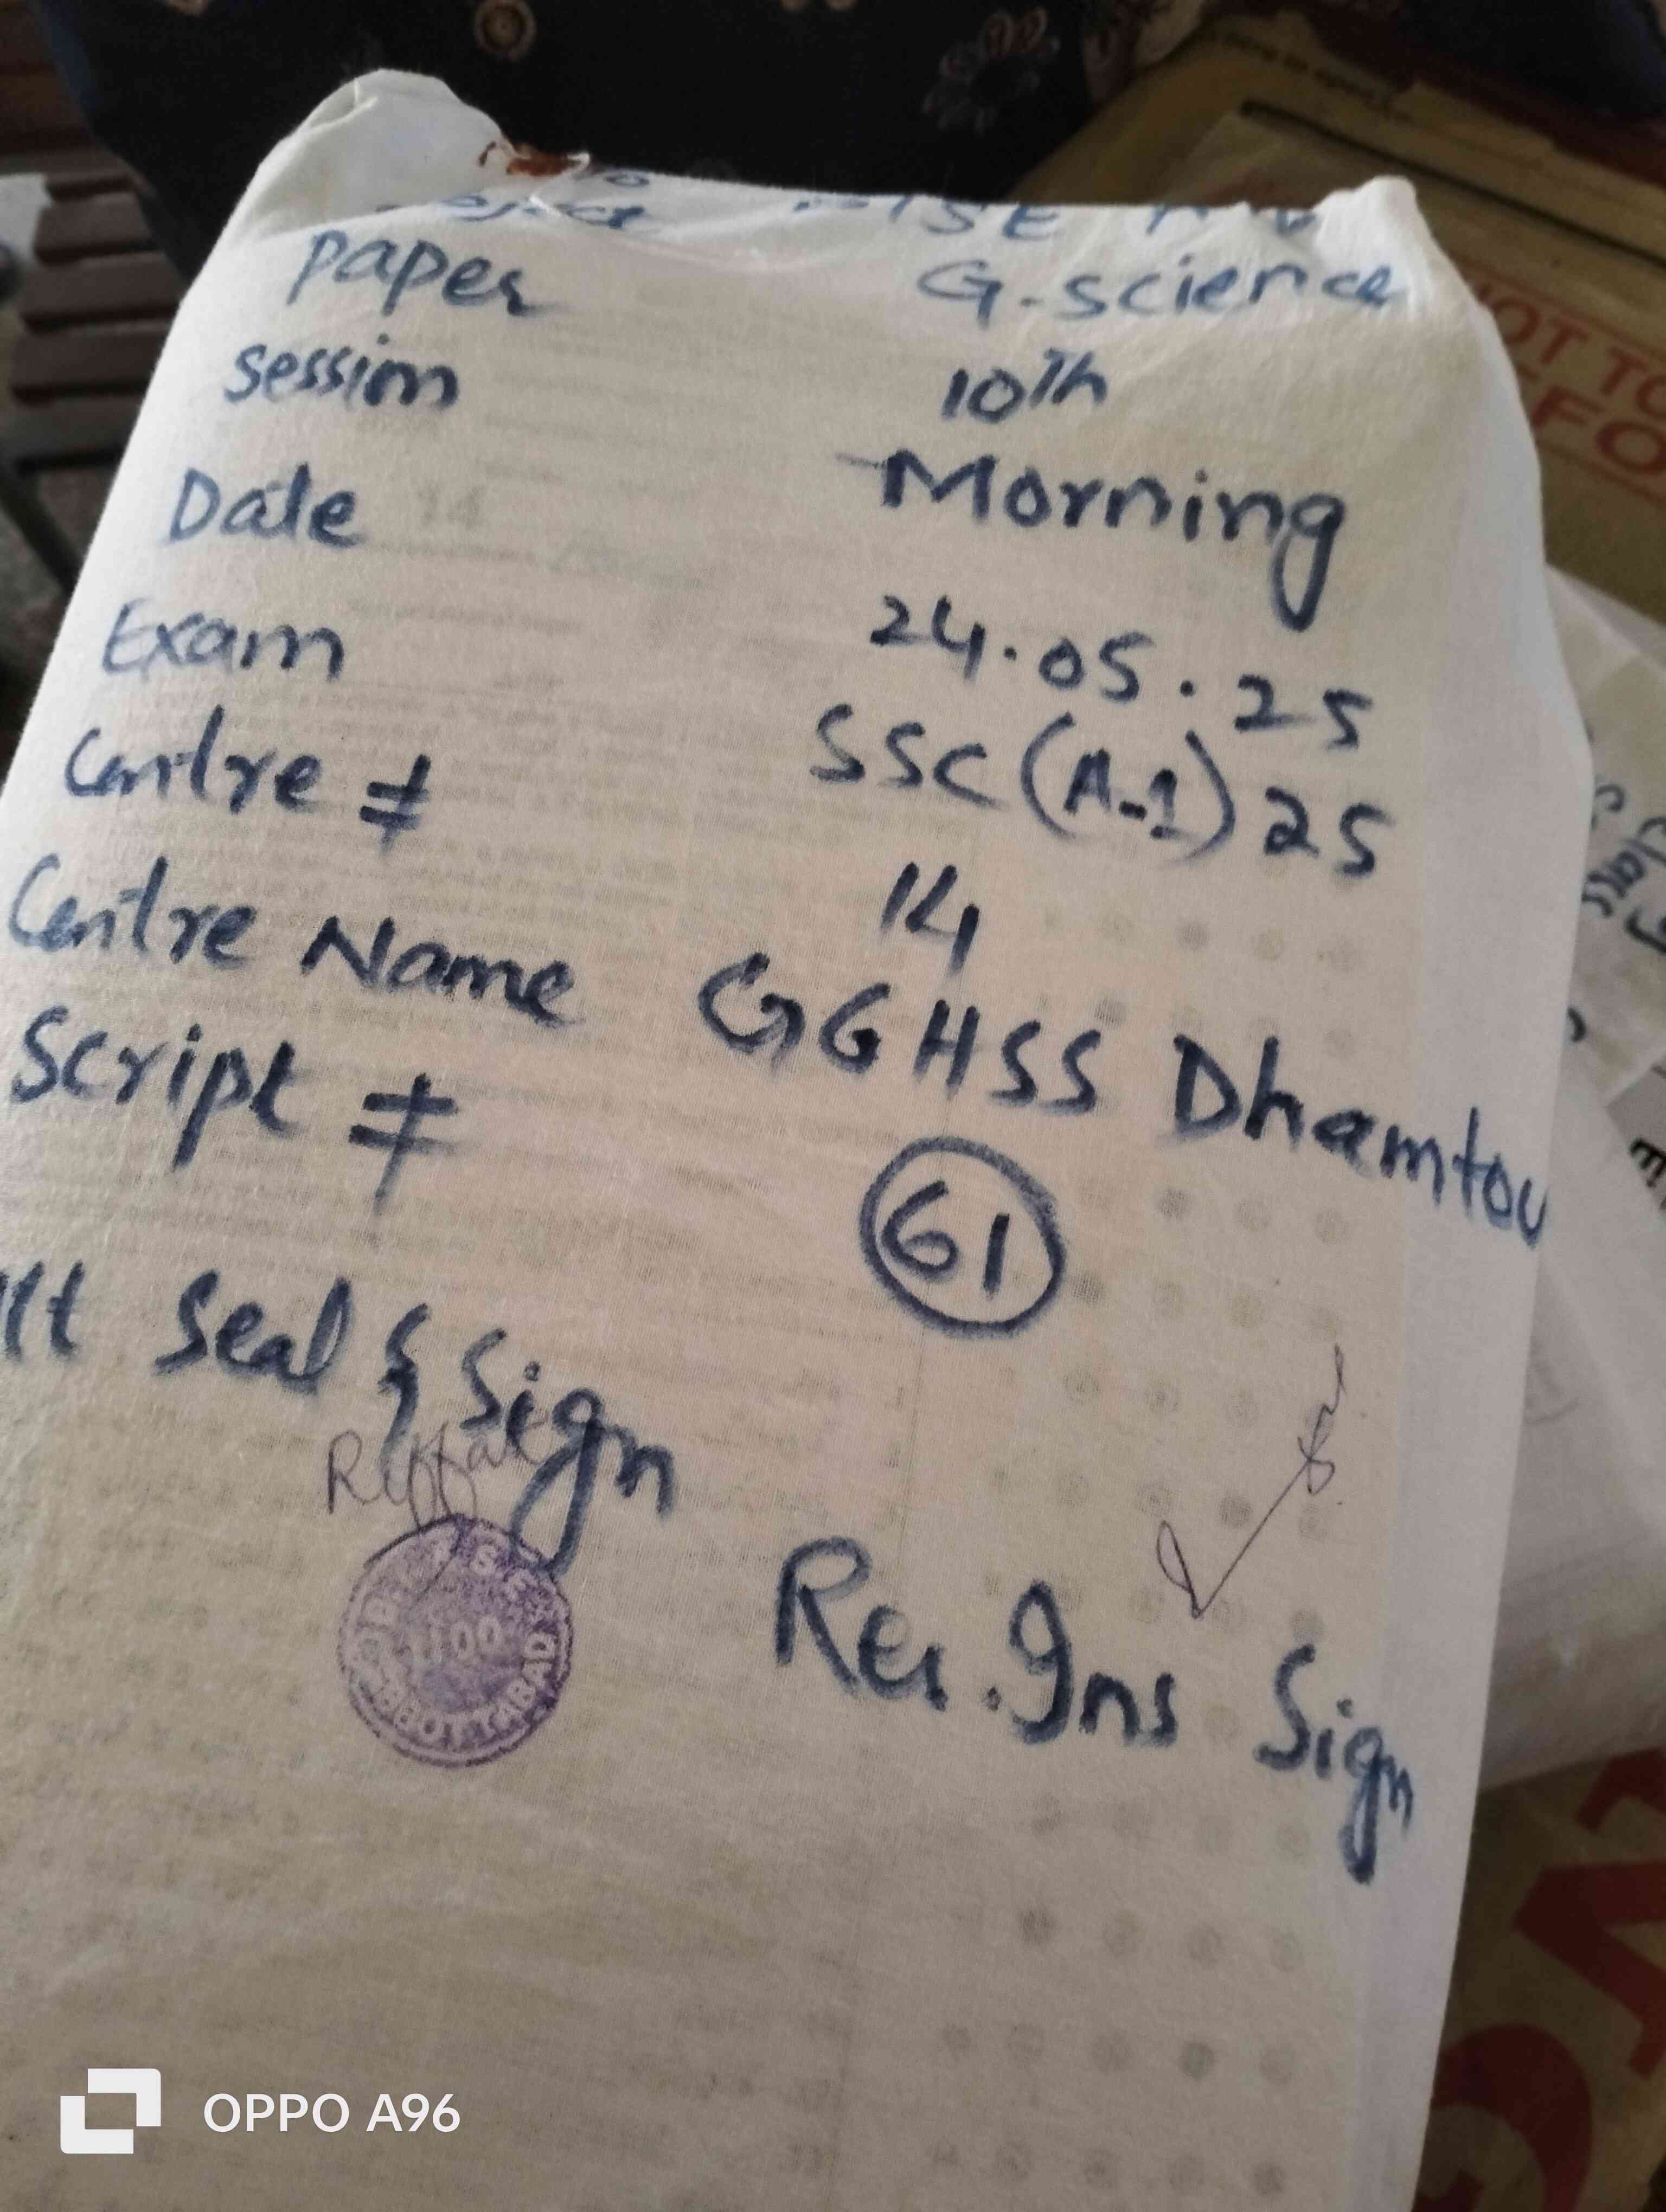 Paper G-science
Session 10Th
Date Morning
Exam 24.05.25
Centre # SSC (A-1) 25
14
Centre Name GGHSS Dhamtou
Script # 61
Seal & Sign
Riffat
ABBOTTABAD
Res. Ins Sign
NOT TO
OPPO A96